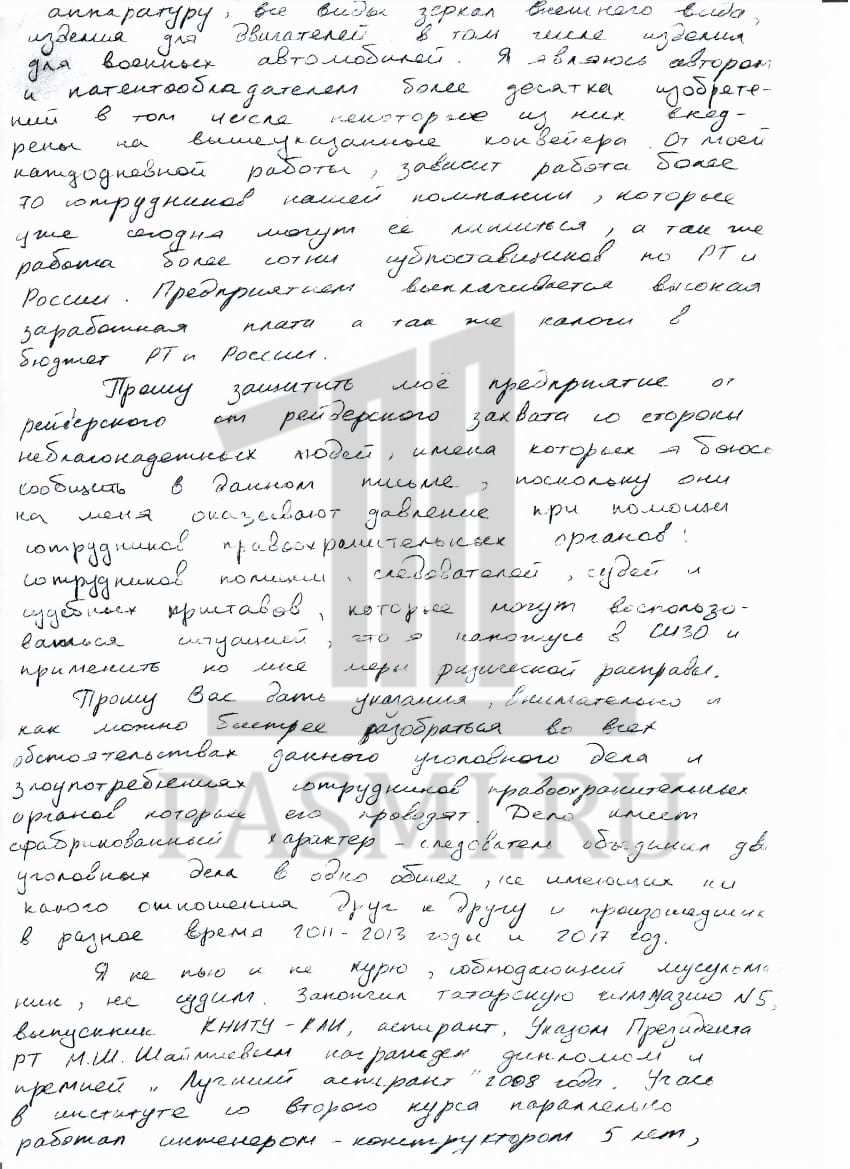 аппаратуру, все виды зеркал внешнего вида,
изделия для двигателей в том числе изделия
для военных автомобилей. Я являюсь автором
и патентообладателем более десятка изобрете-
ний в том числе некоторые из них внед-
рены на вышеуказанные конвейера. От моей
каждодневной работы, зависит работа более
70 сотрудников нашей компании, которые
уже сегодня могут её лишиться, а так же
работа более сотни субпоставщиков по РТ и
России. Предприятием выплачивается высокая
заработная плата а так же налоги в
бюджет РТ и России.
Прошу защитить моё предприятие от
рейдерского от рейдерского захвата со стороны
неблагонадежных людей, имена которых я боюсь
сообщить в данном письме, поскольку они
на меня оказывают давление при помощи
сотрудников правоохранительных органов:
сотрудников полиции, следователей, судей и
судебных приставов, которые могут воспользо-
ваться ситуацией, что я нахожусь в СИЗО и
применить ко мне меры физической расправы.
Прошу Вас дать указания, внимательно и
как можно быстрее разобраться во всех
обстоятельствах данного уголовного дела и
злоупотреблениях сотрудников правоохранительных
органов которые его проводят. Дело имеет
сфабрикованный характер - следователи объединил два
уголовных дела в одно общее, не имеющих ни
какого отношения друг к другу и произошедших
в разное время 2011-2013 годы и 2017 год.
Я не пью и не курю, соблюдающий мусульма-
нин, не судим. Закончил татарскую гимназию №5,
выпускник КНИТУ-КАИ, аспирант, Указом Президента
РТ М.Ш. Шаймиевым награжден дипломом и
премией "Лучший аспирант" 2008 года. Учась
в институте со второго курса параллельно
работал инженером-конструктором 5 лет,
PASMI.RU